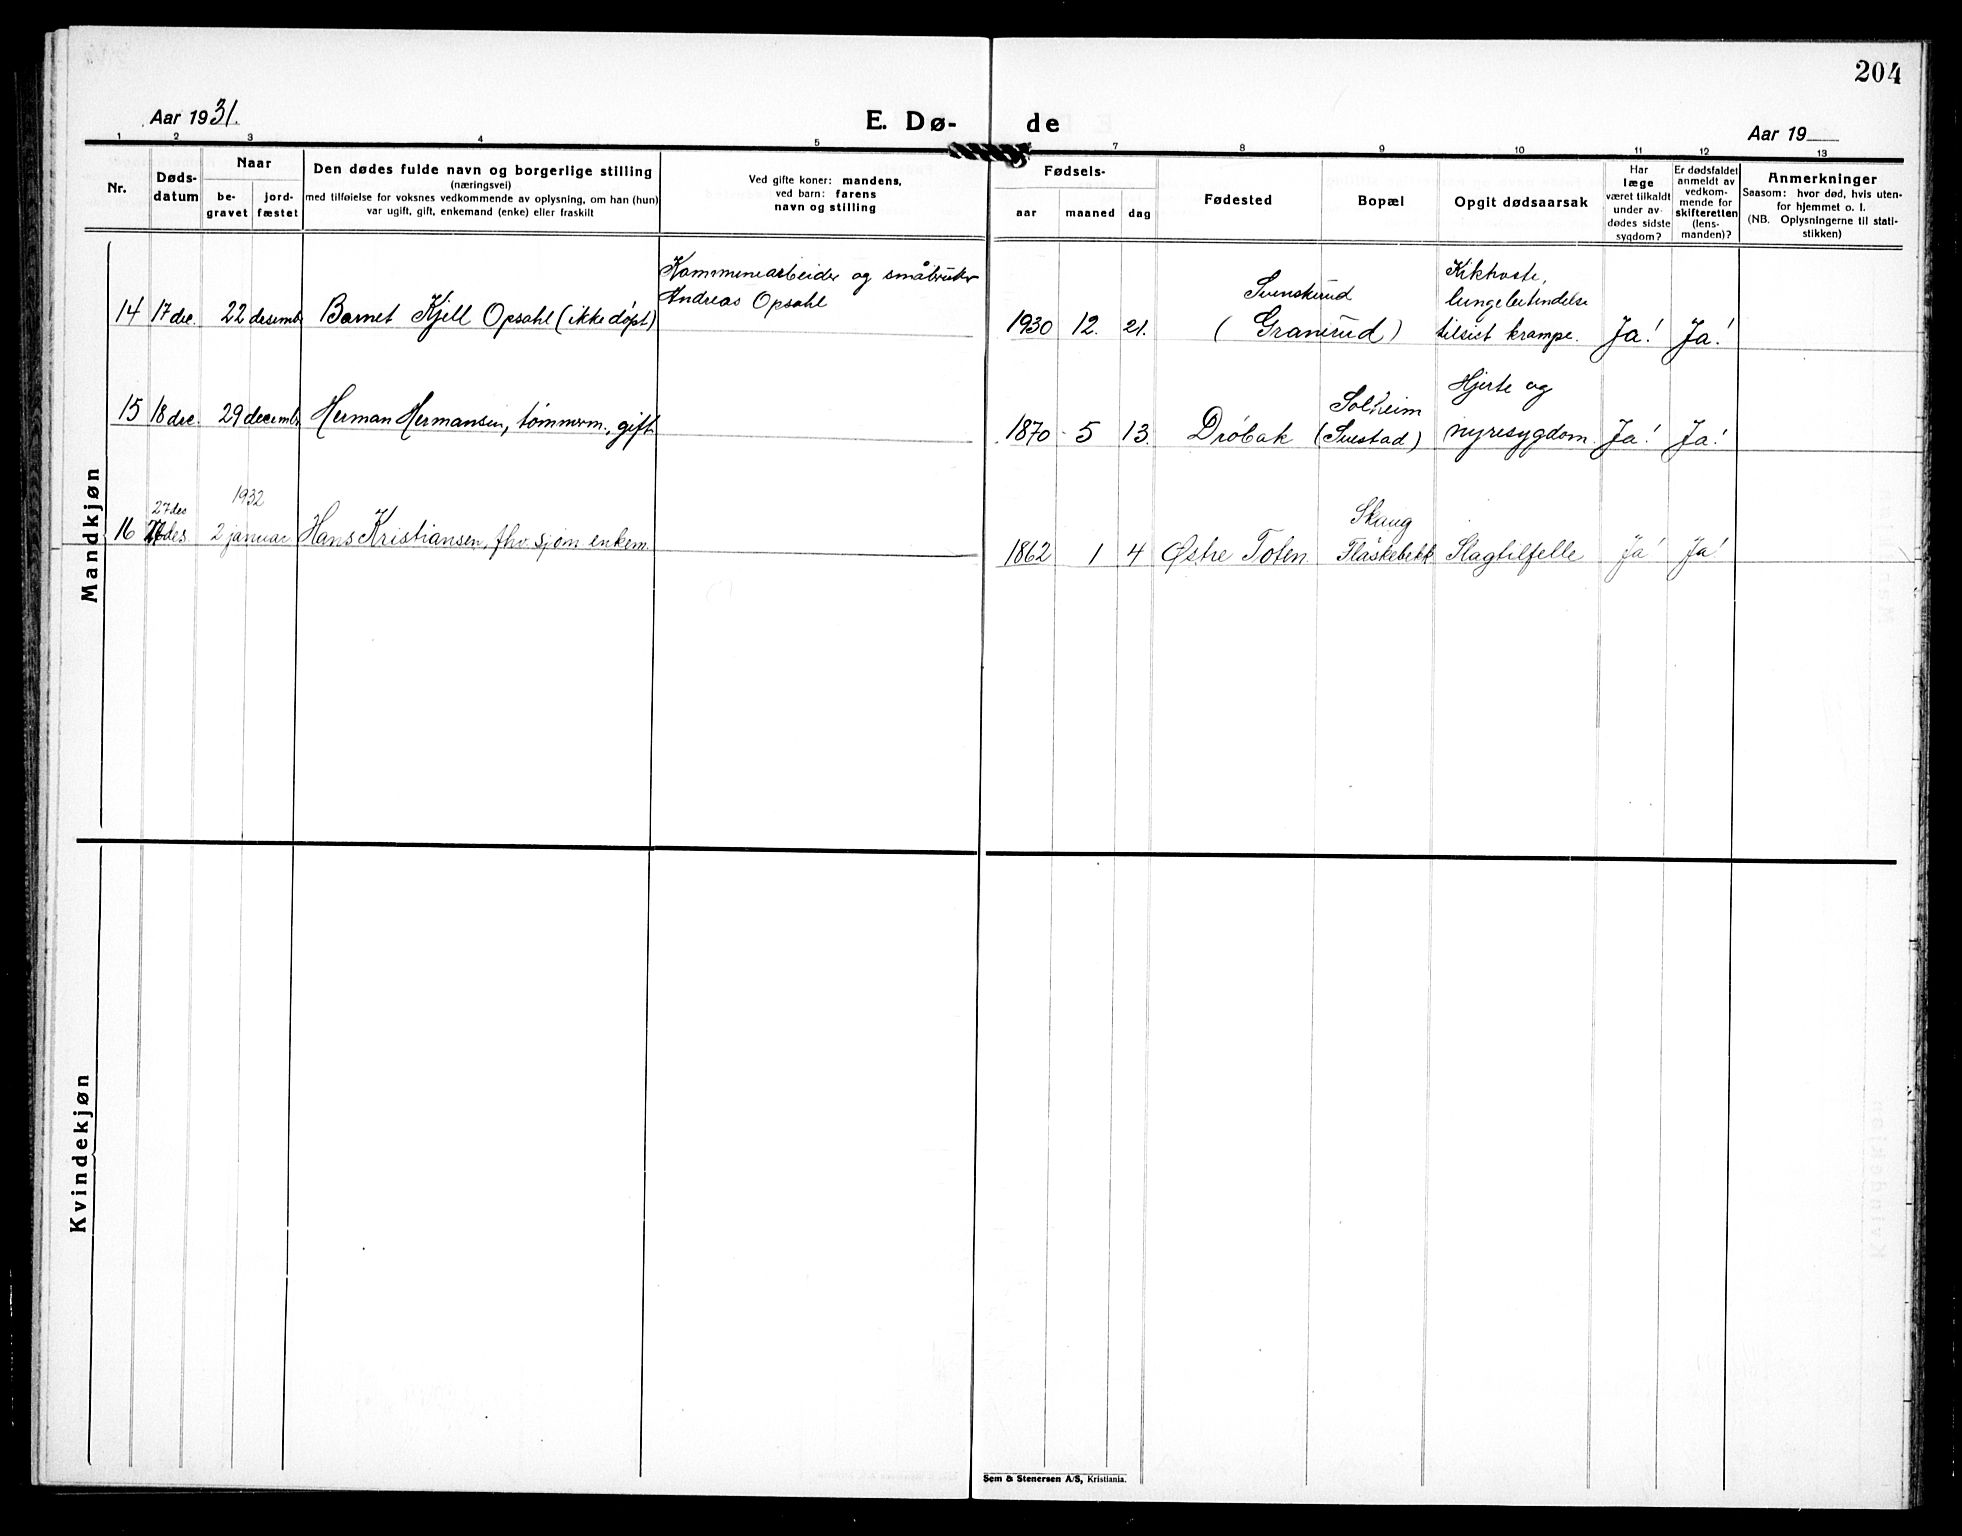 204
Aar 1931.
E. Dø-
de
Aar 19
1 2 3 4 5 7 8 9 10 11 12 13
Nr.
Døds-
datum
Naar
be-
gravet
jord-
fæstet
Den dødes fulde navn og borgerlige stilling
(næringsvei)
med tilføielse for voksnes vedkommende av oplysning, om han (hun)
var ugift, gift, enkemand (enke) eller fraskilt
Ved gifte koner: mandens,
ved barn: farens
navn og stilling
Fødsels-
aar
maaned
dag
Fødested
Bopæl
Opgit dødsaarsak
Har
læge
været tilkaldt
under av-
dødes sidste
sygdom?
Er dødsfaldet
anmeldt av
vedkom-
mende for
skifteretten
(lens-
manden)?
Anmerkninger
Saasom: hvor død, hvis uten-
for hjemmet o. l.
(NB. Oplysningerne til stati-
stikken)
Mandkjøn
14 17 dec. 22 desemb. Barnet Kjell Opsahl (ikke døpt)
Kommunearbeider og småbruker
Andreas Opsahl
1930 12. 21.
Svenskerud
(Granerud)
Kikhoste,
lungebetendelse
tilsist krampe.
Ja! Ja!
15 18 dec. 29 decemb. Herman Hermansen, tømmerm., gift
1870 5 13. Drøbak
Solheim
(Svestad)
Hjerte og
nyresygdom.
Ja! Ja!
27 des
1932
16 des. 2 januar Hans Kristiansen, fhv. sjøm enkem.
1862 1 4 Østre Toten.
Skaug
Flaskebekk
Slagtilfelle
Ja! Ja!
Kvindekjøn
Sem & Stenersen A/S, Kristiania.